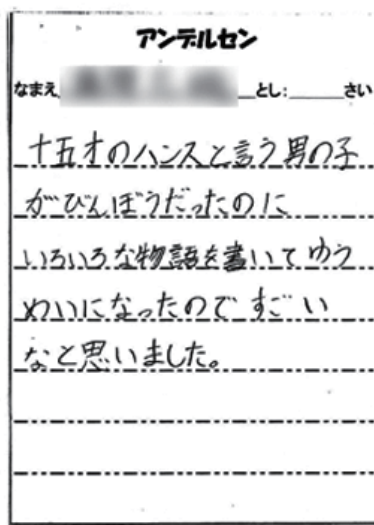 アンデルセン
なまえ とし: さい
十五才のハンスと言う男の子
がびんぼうだったのに
いろいろな物語を書いてゆう
めいになったのですごい
なと思いました。